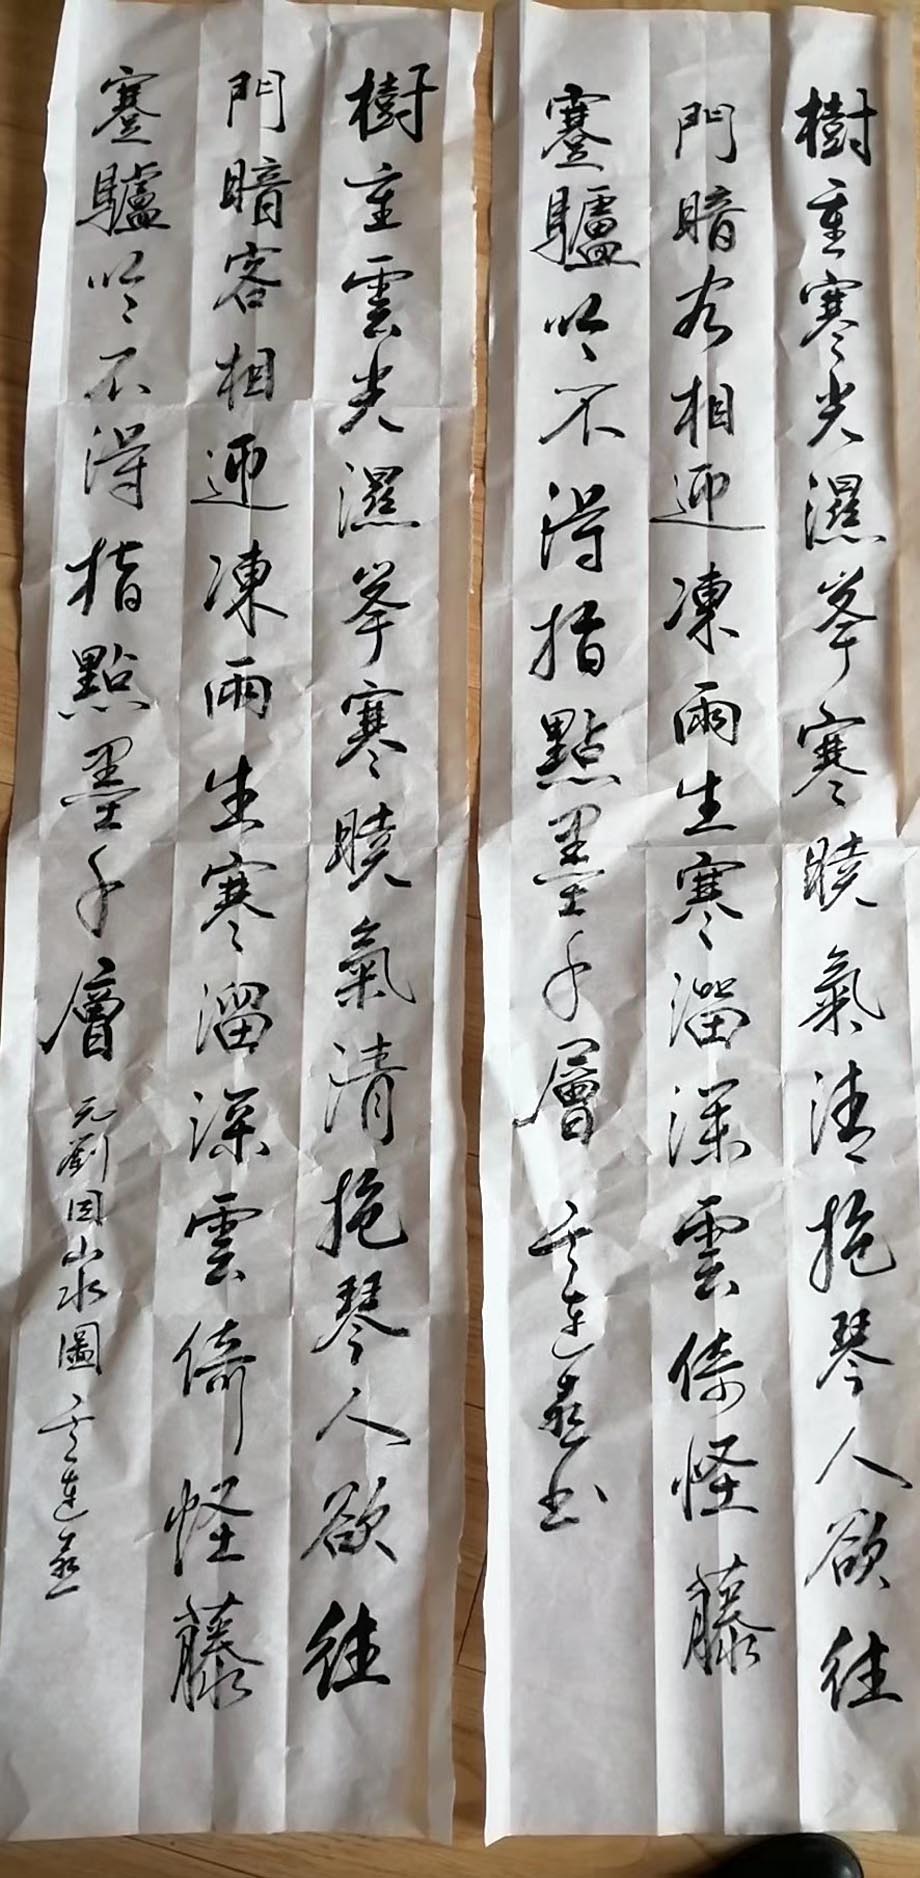 樹重寒光濕峯寒曉氣清抱琴人欲往
門暗客相迎凍雨生寒溜深雲倚怪藤
蹇驢吟不得指點墨千層 連燕书
樹重雲光濕峯寒曉氣清抱琴人欲往
門暗客相迎凍雨生寒溜深雲倚怪藤
蹇驢吟不得指點墨千層 元劉因山水圖 連燕